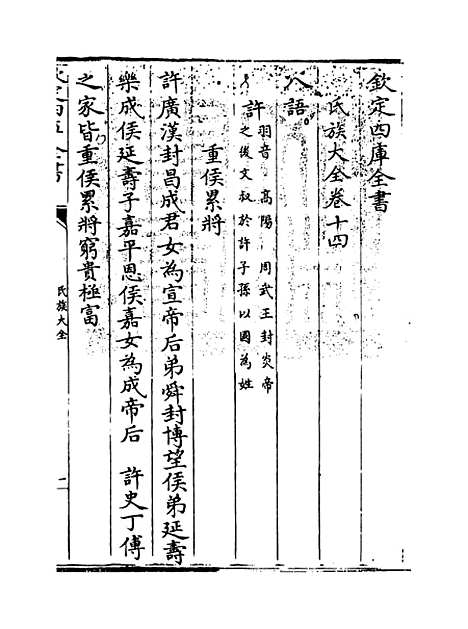 欽定四庫全書
氏族大全卷十四
八語
許羽音 高陽 周武王封炎帝
之後文叔於許子孫以國為姓
重侯累將
許廣漢封昌成君女為宣帝后弟舜封博望侯弟延壽
樂成侯延壽子嘉平恩侯嘉女為成帝后 許史丁傅
之家皆重侯累將窮貴極富
氏族大全